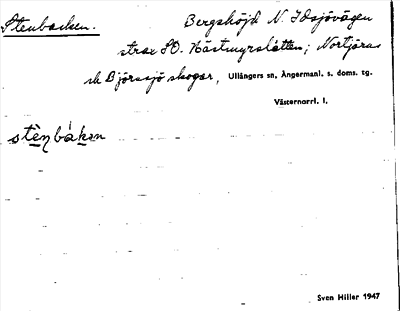 Stenbacken.
Bergshöjd N. Idsjövägen
strax SO. Hästmyrslåtten; Nortjärns
ock Björnsjö skogar, Ullångers sn, Ångermanl. s. doms. tg.
Västernorrl. l.
stènbàken
Sven Hiller 1947